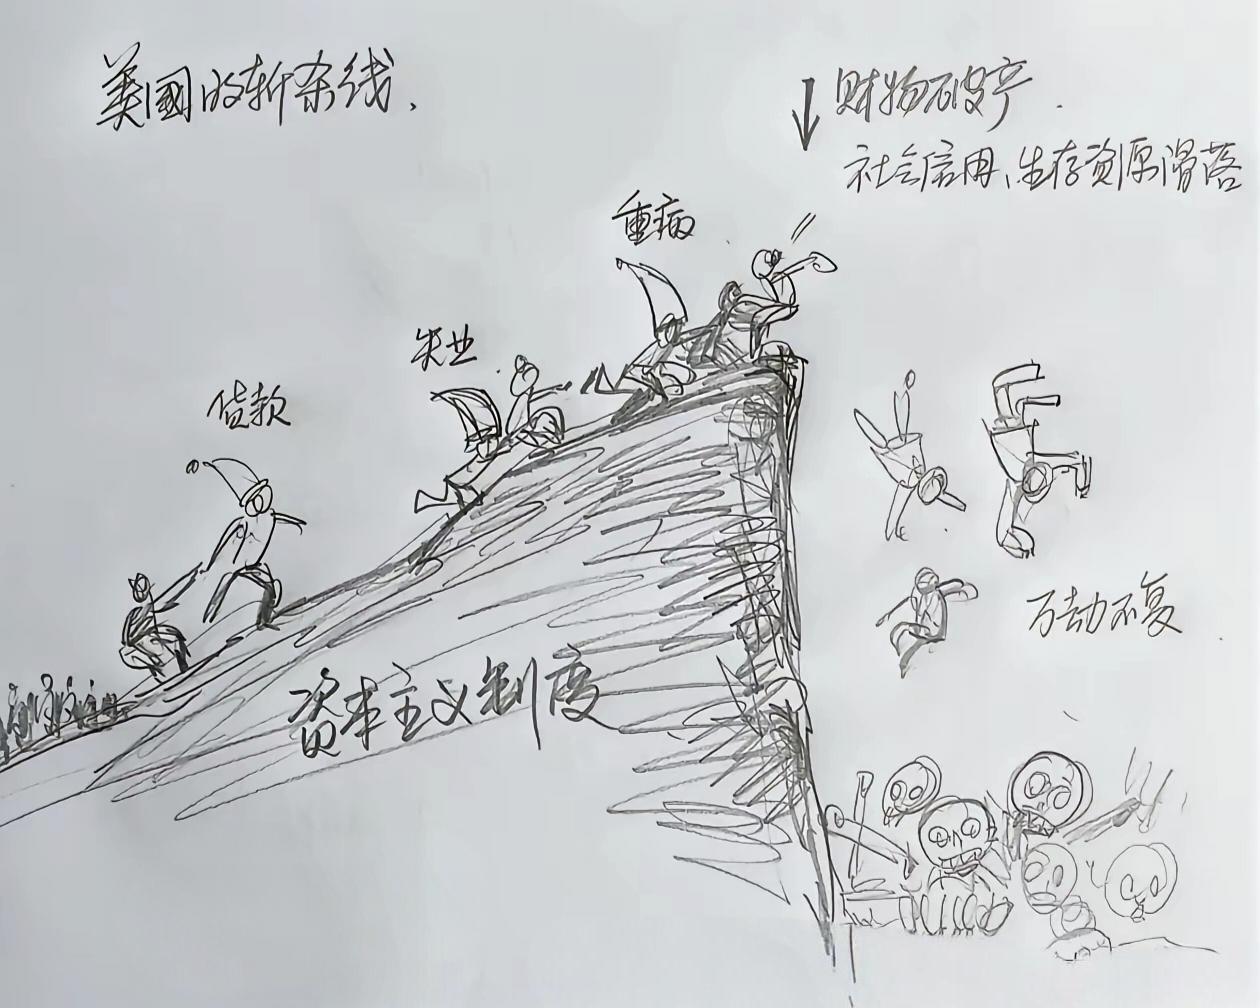 美國的斩杀线.
↓财物破产.
社会信用、生存资源滑落
重病
失业
贷款
万劫不复
资本主义制度